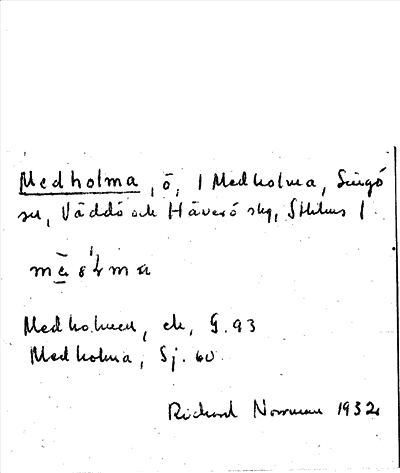 Medholma, ö, / Medholma, Singö
sn, Väddö och Häverö skg, Sthlms l.
Medholmen, ek, G. 93
Medholma, Sj. 60
Richard Norrman 1932